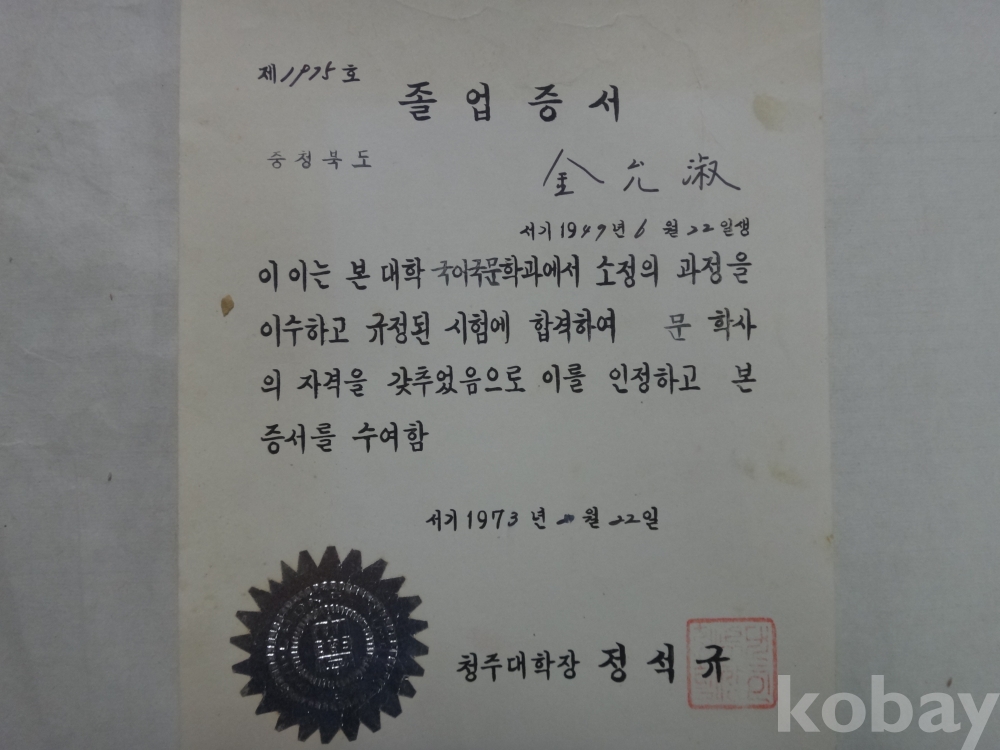 제1975호
졸업증서
충청북도
金允淑
서기1949년 6월22일생
이 이는 본 대학 국어국문학과에서 소정의 과정을
이수하고 규정된 시험에 합격하여 문 학사
의 자격을 갖추었음으로 이를 인정하고 본
증서를 수여함
서기1973년 2월22일
청주대학장 정석규
kobay